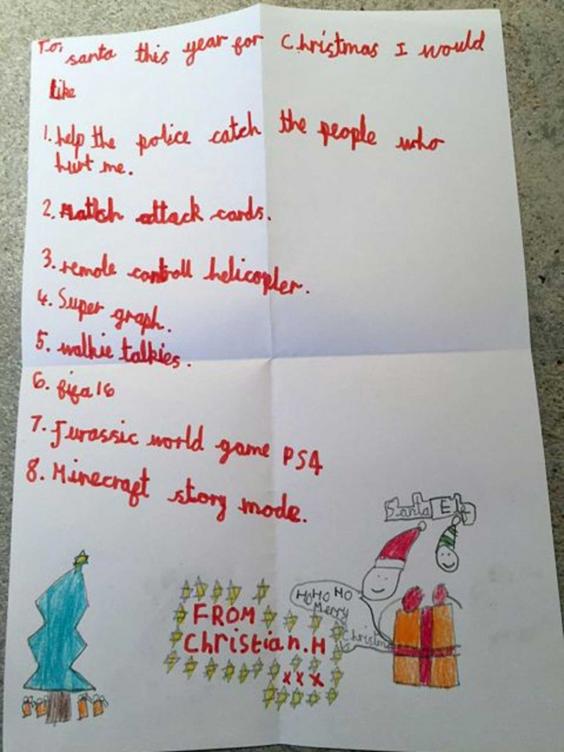 To,
santa this year for Christmas I would
like
1. help the police catch the people who
hurt me.
2. Match attack cards.
3. remote controll helicopter.
4. Super graph.
5. walkie talkies.
6. fifa 16
7. Jurassic world game PS4
8. Minecraft story mode.
Santa Elf
HoHoHo
Merry
Christmas
FROM
Christian.H
xxx